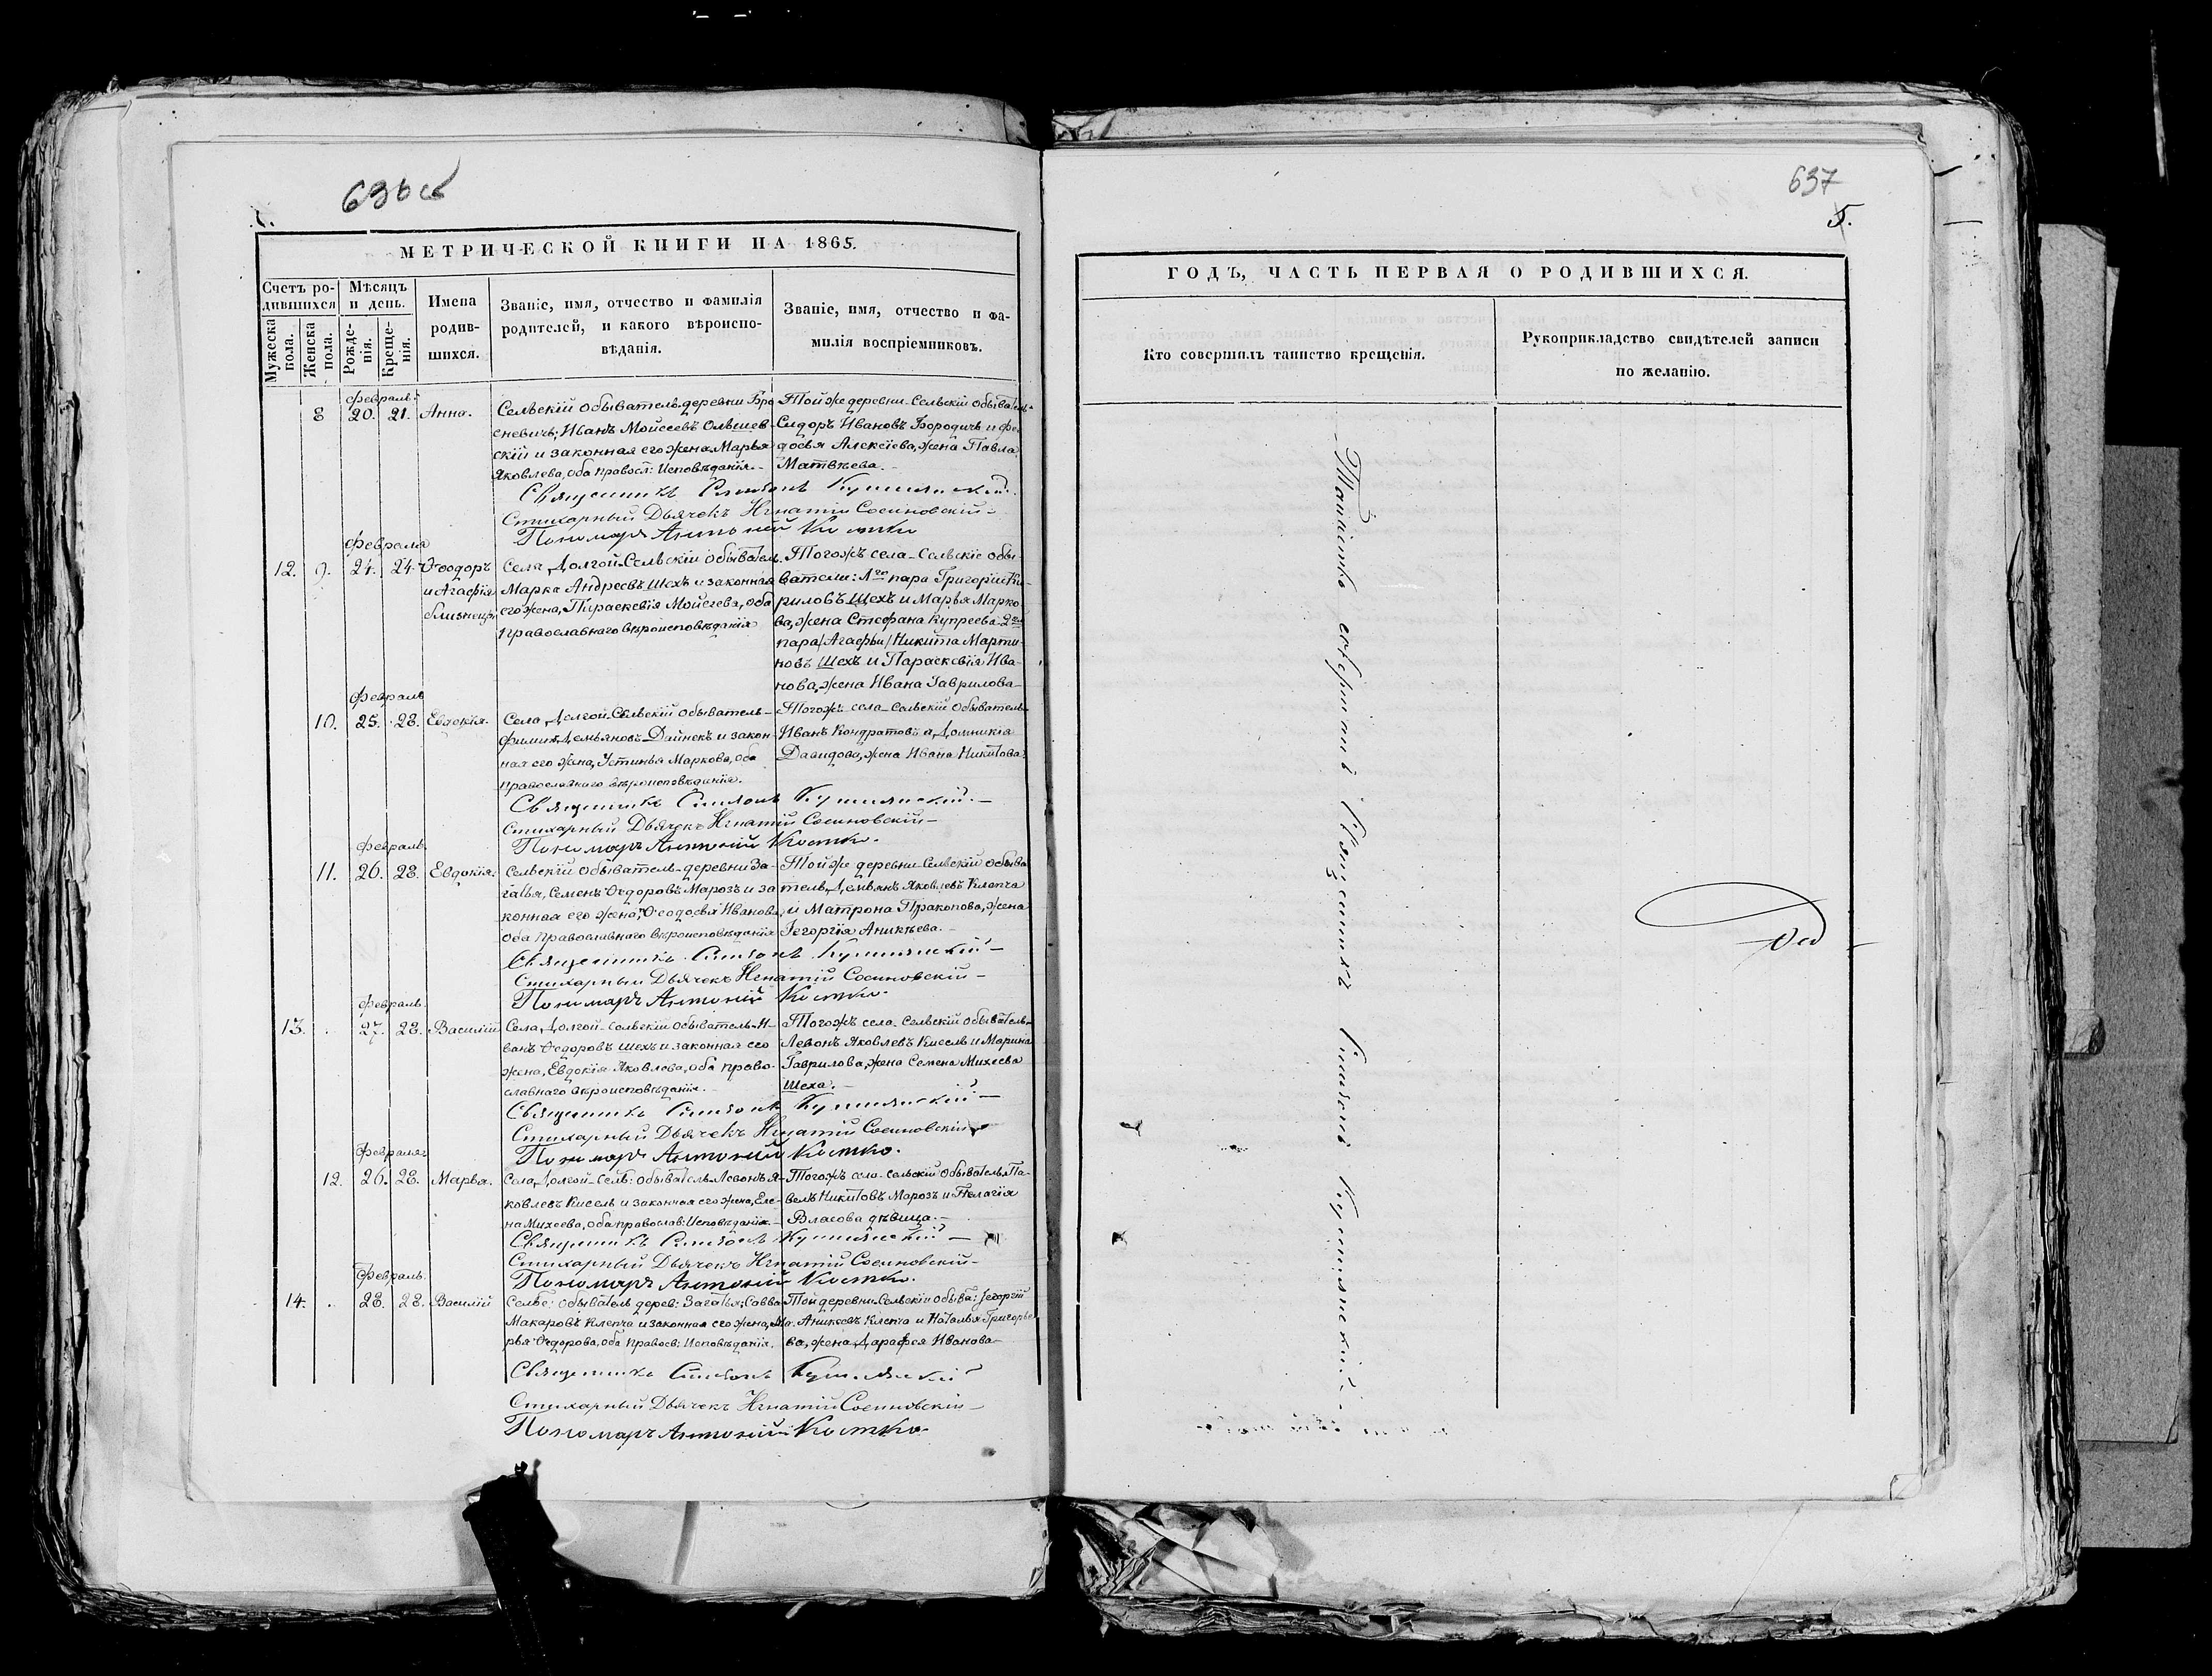 636 об
МЕТРИЧЕСКОЙ КНИГИ НА 1865.
Счетъ родившихся
Мужеска пола.
Женска пола.
Мѣсяцъ и день.
Рожденія.
Крещенія.
Имена родившихся.
Званіе, имя, отчество и фамилія родителей, и какого вѣроисповѣданія.
Званіе, имя, отчество и фамилія воспріемниковъ.
Февраль
8 20. 21. Анна.
Сельскій обыватель деревни Бро
сневичь, Иванъ Мойсеевъ Ольшев
скій и законная его жена Марья
Яковлева, оба правосл: Исповѣданія.
Той же деревни Сельскій обыватель
Сидоръ Ивановъ Бородичь и Фео
досья Алексѣева, жена Павла
Матвѣева.
Священникъ Симеонъ
Стихарный Дьячекъ Игнатій Сосиновскій
Пономарь Антоній Костко
Февраля
12. 9. 24. 24. Ѳеодоръ
и Агафія
близнецы
Села Долгой Сельскій обыватель
Марка Андреевъ Шехъ и законная
его жена, Параскевія Мойсеева, оба
православнаго вѣроисповѣданія
Тогожъ села Сельскіе обы-
ватели: 1го пара Григорій Ки-
риловъ Шехъ и Марья Марко
ва, жена Стефана Купреева 2я
пара /Агафьи/ Никита Марти
новъ Шехъ и Параскевія Ива-
нова, жена Ивана Гаврилова
Февраль
10. 25. 28. Евдокія.
Села Долгой Сельскій обыватель
Демьяновъ Дайнекъ и закон-
ная его жена, Устинья Маркова, оба
православнаго вѣроисповѣданія.
Тогожъ села Сельскій обыватель
Иванъ Кондратовъ и Домникія
Давидова, жена Ивана Никитова
Священникъ Симеонъ
Стихарный Дьячекъ Игнатій Сосиновскій
Пономарь Антоній Костко.
Февраль
11. 26. 28. Евдокія.
Сельскій обыватель деревни За-
гатья, Семенъ Ѳедоровъ Марозъ и за
конная его жена, Ѳеодосья Иванова,
оба православнаго вѣроисповѣданія
Той же деревни Сельскій обыва
тель, Демьянъ Яковлевъ Клепча
и Матрона Пракопова, жена
Георгія Аникѣева.
Священникъ Симеонъ
Стихарный Дьячекъ Игнатій Сосиновскій
Пономарь Антоній Костко.
Февраль
13. 27. 28. Василій
Села Долгой сельскій обыватель И-
ванъ Ѳедоровъ Шехъ и законная его
жена, Евдокія Яковлева, оба право-
славнаго вѣроисповѣданія.
Тогожъ села Сельскій обыватель
Левонъ Яковлевъ Кисель и Марина
Гаврилова, жена Семена Михеева
Шеха.
Священникъ Симеонъ
Стихарный Дьячекъ Игнатій Сосиновскій
Пономарь Антоній Костко.
Февраля
12. 26. 28. Марья.
Села Долгой Сель: обыватель Левонъ Я-
ковлевъ Кисель и законная его жена, Еле-
на Михеева, оба православ: Исповѣданія.
Тогожъ села сельскій обыватель Па-
велъ Никитовъ Марозъ и Пелагія
Власова дѣвица.
Священникъ Симеонъ
Стихарный Дьячекъ Игнатій Сосиновскій
Пономарь Антоній Костко.
Февраль.
14. 28. 28. Василій
Сельс: обыватель дерев: Загатья: Савва
Макаровъ Клепча и законная его жена, Ма
рья Ѳедорова, оба правосл: Исповѣданія.
Той деревни Сельскій обыва: Георгій
Аникеевъ Клепча и Наталья Григорье
ва, жена Дарафея Иванова
Священникъ Симеонъ
Стихарный Дьячекъ Игнатій Сосиновскій
Пономарь Антоній Костко.
637
5.
ГОДЪ, ЧАСТЬ ПЕРВАЯ О РОДИВШИХСЯ.
Кто совершилъ таинство крещенія.
Рукоприкладство свидѣтелей записи по желанію.
Таинство совершилъ Священникъ Симеонъ